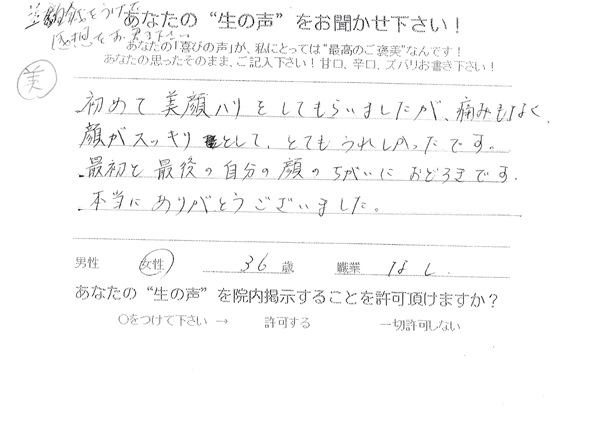 美顔鍼をうけて
感想をお書き下さい
あなたの“生の声”をお聞かせ下さい！
あなたの「喜びの声」が、私にとっては“最高のご褒美”なんです！
あなたの思ったそのまま、ご記入下さい！甘口、辛口、ズバリお書き下さい！
美
初めて美顔ハリをしてもらいましたが、痛みもなく、
顔がスッキリとして、とてもうれしかったです。
最初と最後の自分の顔のちがいにおどろきです。
本当にありがとうございました。
男性 女性 36歳 職業 なし
あなたの“生の声”を院内掲示することを許可頂けますか？
○をつけて下さい → 許可する 一切許可しない